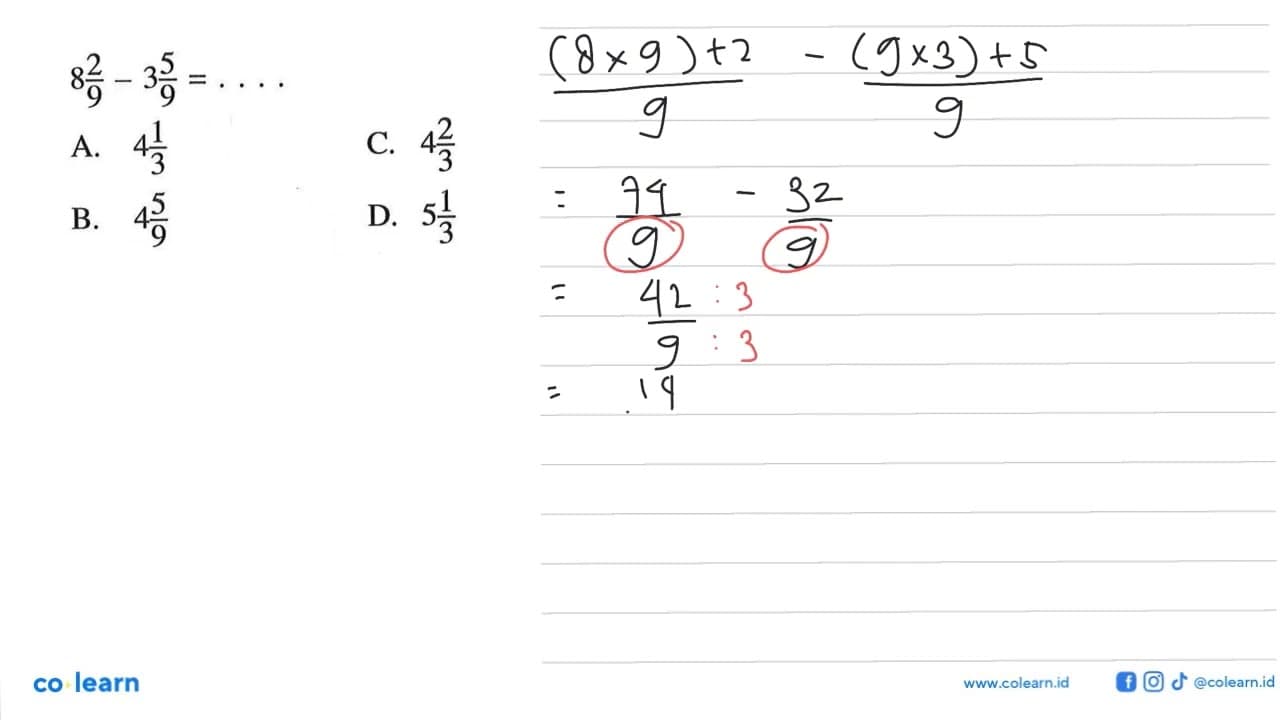 8 2/9 – 3 5/9 = . . . .
A. 4 1/3
C. 4 2/3
B. 4 5/9
D. 5 1/3
(8 × 9) + 2 / 9 – (9 × 3) + 5 / 9
= 74/9 – 32/9
= 42 : 3 / 9 : 3
= 14
co learn
www.colearn.id
@colearn.id